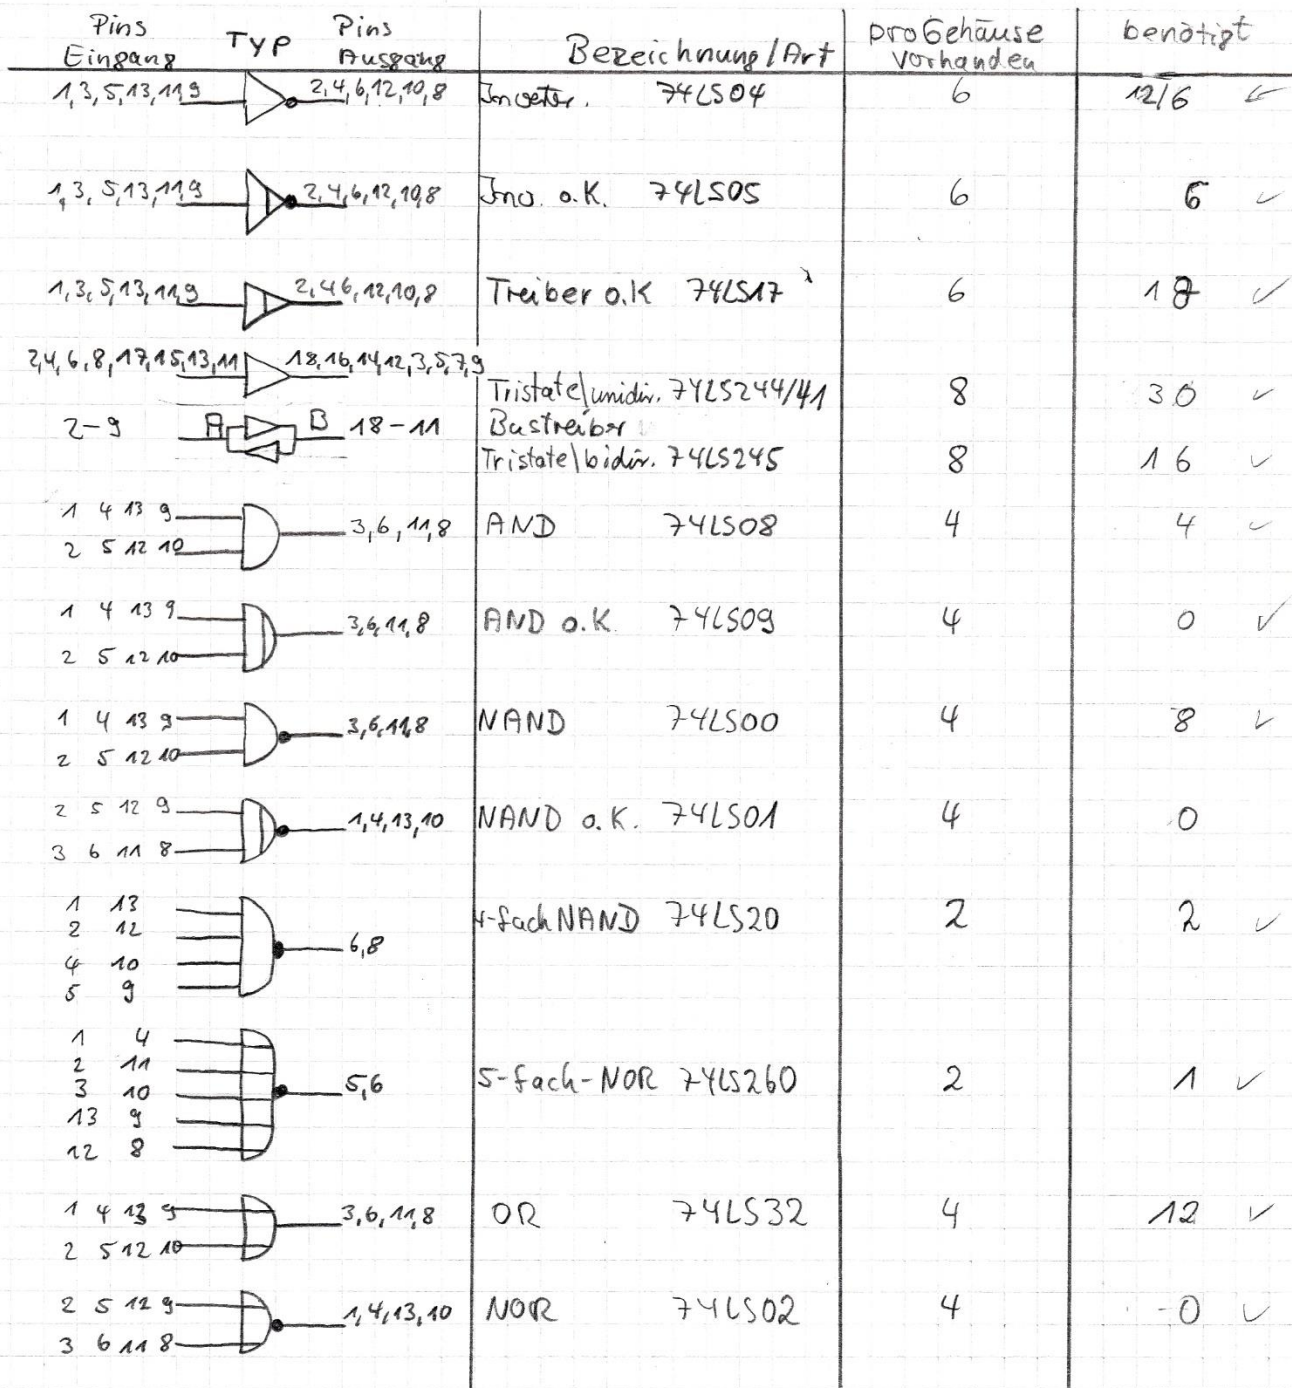 Pins Eingang Typ Pins Ausgang Bezeichnung/Art pro Gehäuse vorhanden benötigt
1,3,5,13,11,9 2,4,6,12,10,8 Inverter. 74LS04 6 12/6
1,3,5,13,11,9 2,4,6,12,10,8 Inv. o.K. 74LS05 6 6
1,3,5,13,11,9 2,4,6,12,10,8 Treiber o.K 74LS17 6
2,4,6,8,17,15,13,11 18,16,14,12,3,5,7,9
Tristate/unidir. 74LS244/41 8 30
2-9 A B 18-11 Bustreiber
Tristate/bidir. 74LS245 8 16
1 4 13 9
3,6,11,8 AND 74LS08 4 4
2 5 12 10
1 4 13 9
3,6,11,8 AND o.K. 74LS09 4 0
2 5 12 10
1 4 13 9
3,6,11,8 NAND 74LS00 4 8
2 5 12 10
2 5 12 9
1,4,13,10 NAND o.K. 74LS01 4 0
3 6 11 8
1 13
2 12 4-fach NAND 74LS20 2 2
6,8
4 10
5 9
1 4
2 11
3 10 5,6 5-fach-NOR 74LS260 2 1
13 9
12 8
1 4 13 9
3,6,11,8 OR 74LS32 4 12
2 5 12 10
2 5 12 9
1,4,13,10 NOR 74LS02 4 0
3 6 11 8